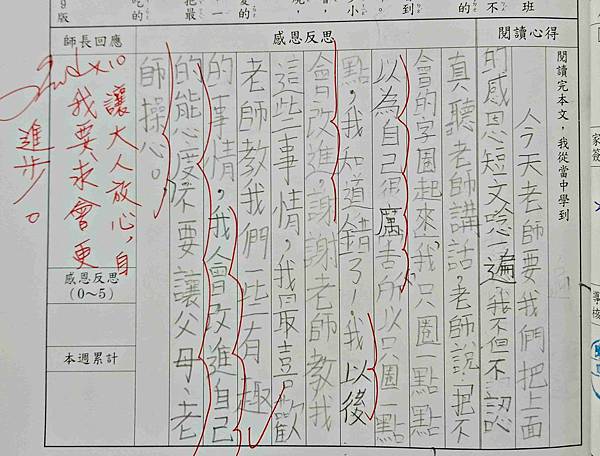 閱讀心得
閱讀完本文，我從當中學到
今天老師要我們把上面
的感恩短文唸一遍，我不但不認
真聽老師講話，老師說：把不
會的字圈起來，我只圈一點點
以為自己很厲害所以只圈一點
點，我知道錯了！我以後
會改進，謝謝老師教我
這些事情，我最喜歡
老師教我們一些有趣
的事情，我會改進自己
的態度不要讓父母、老
師操心。
感恩反思
師長回應
讓大人放心，自
我要求會更
進步。
感恩反思
(0～5)
本週累計
家簽